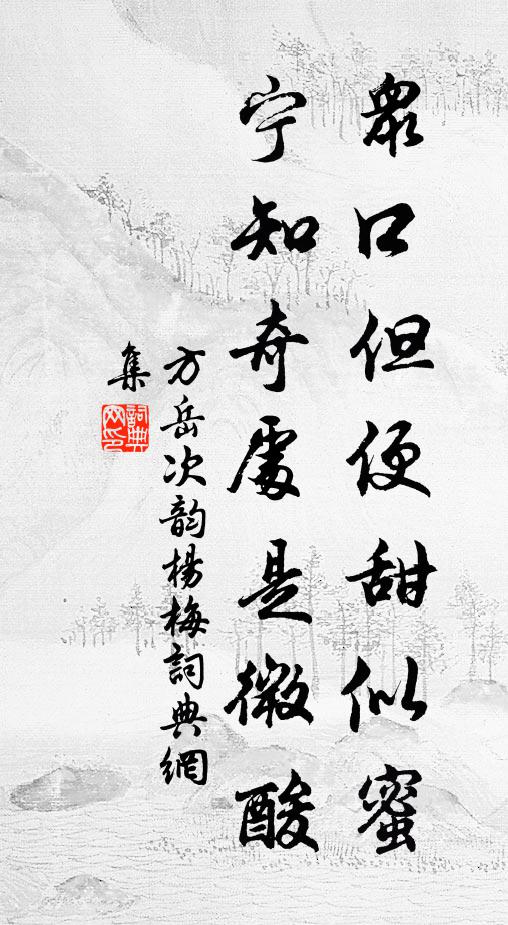 眾口但便甜似蜜
宁知奇處是微酸
方岳次韵楊梅詞典網
集
詞典
网印